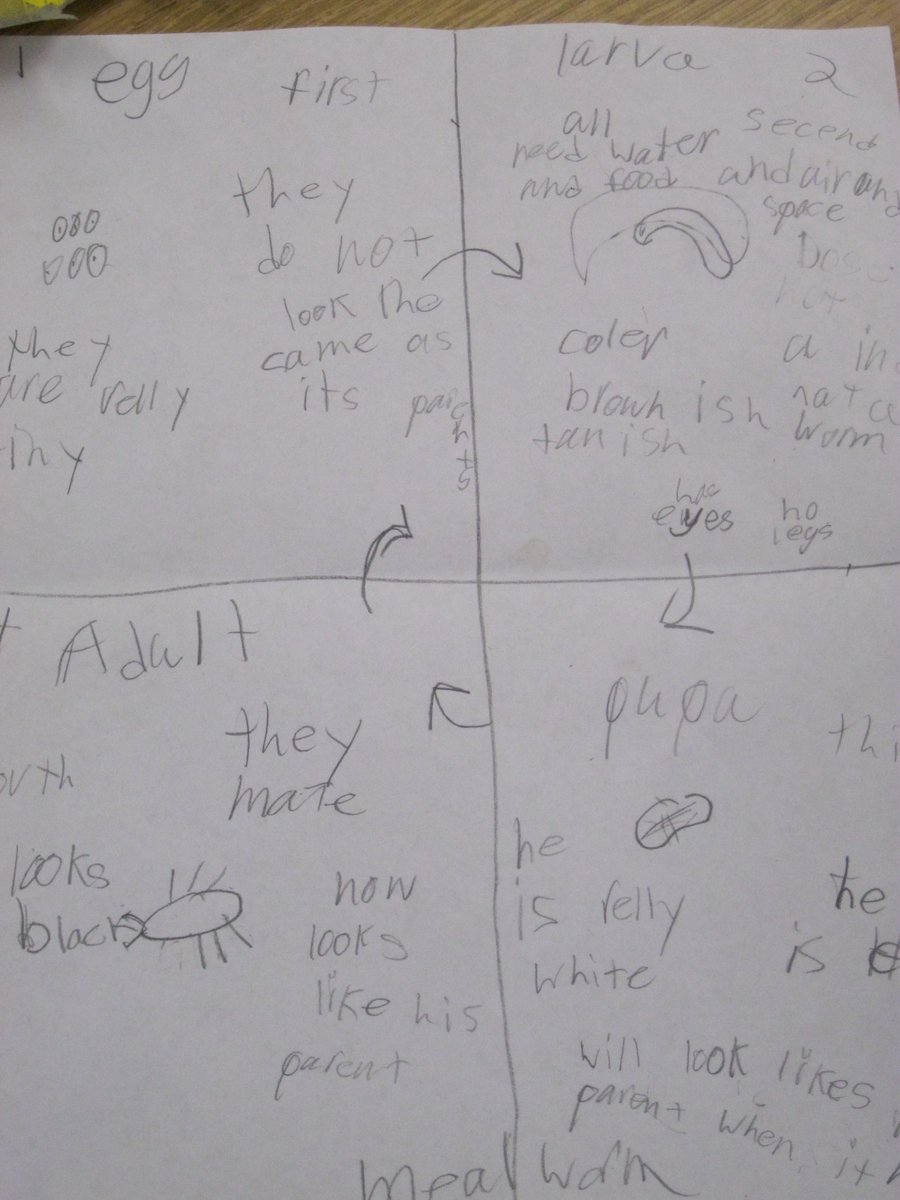 1 egg first
they
do not
look the
came as
its parents
they
are relly
tiny
larva 2
all
need water
and food
secend
and air and
space
Dose
not
coler
brown ish
tan ish
a
not a
worm
has
eyes
no
legs
pupa
he
is relly
white
he
is
will look likes
parent when it
Adult
they
mate
looks
black
now
looks
like his
parent
meal worm